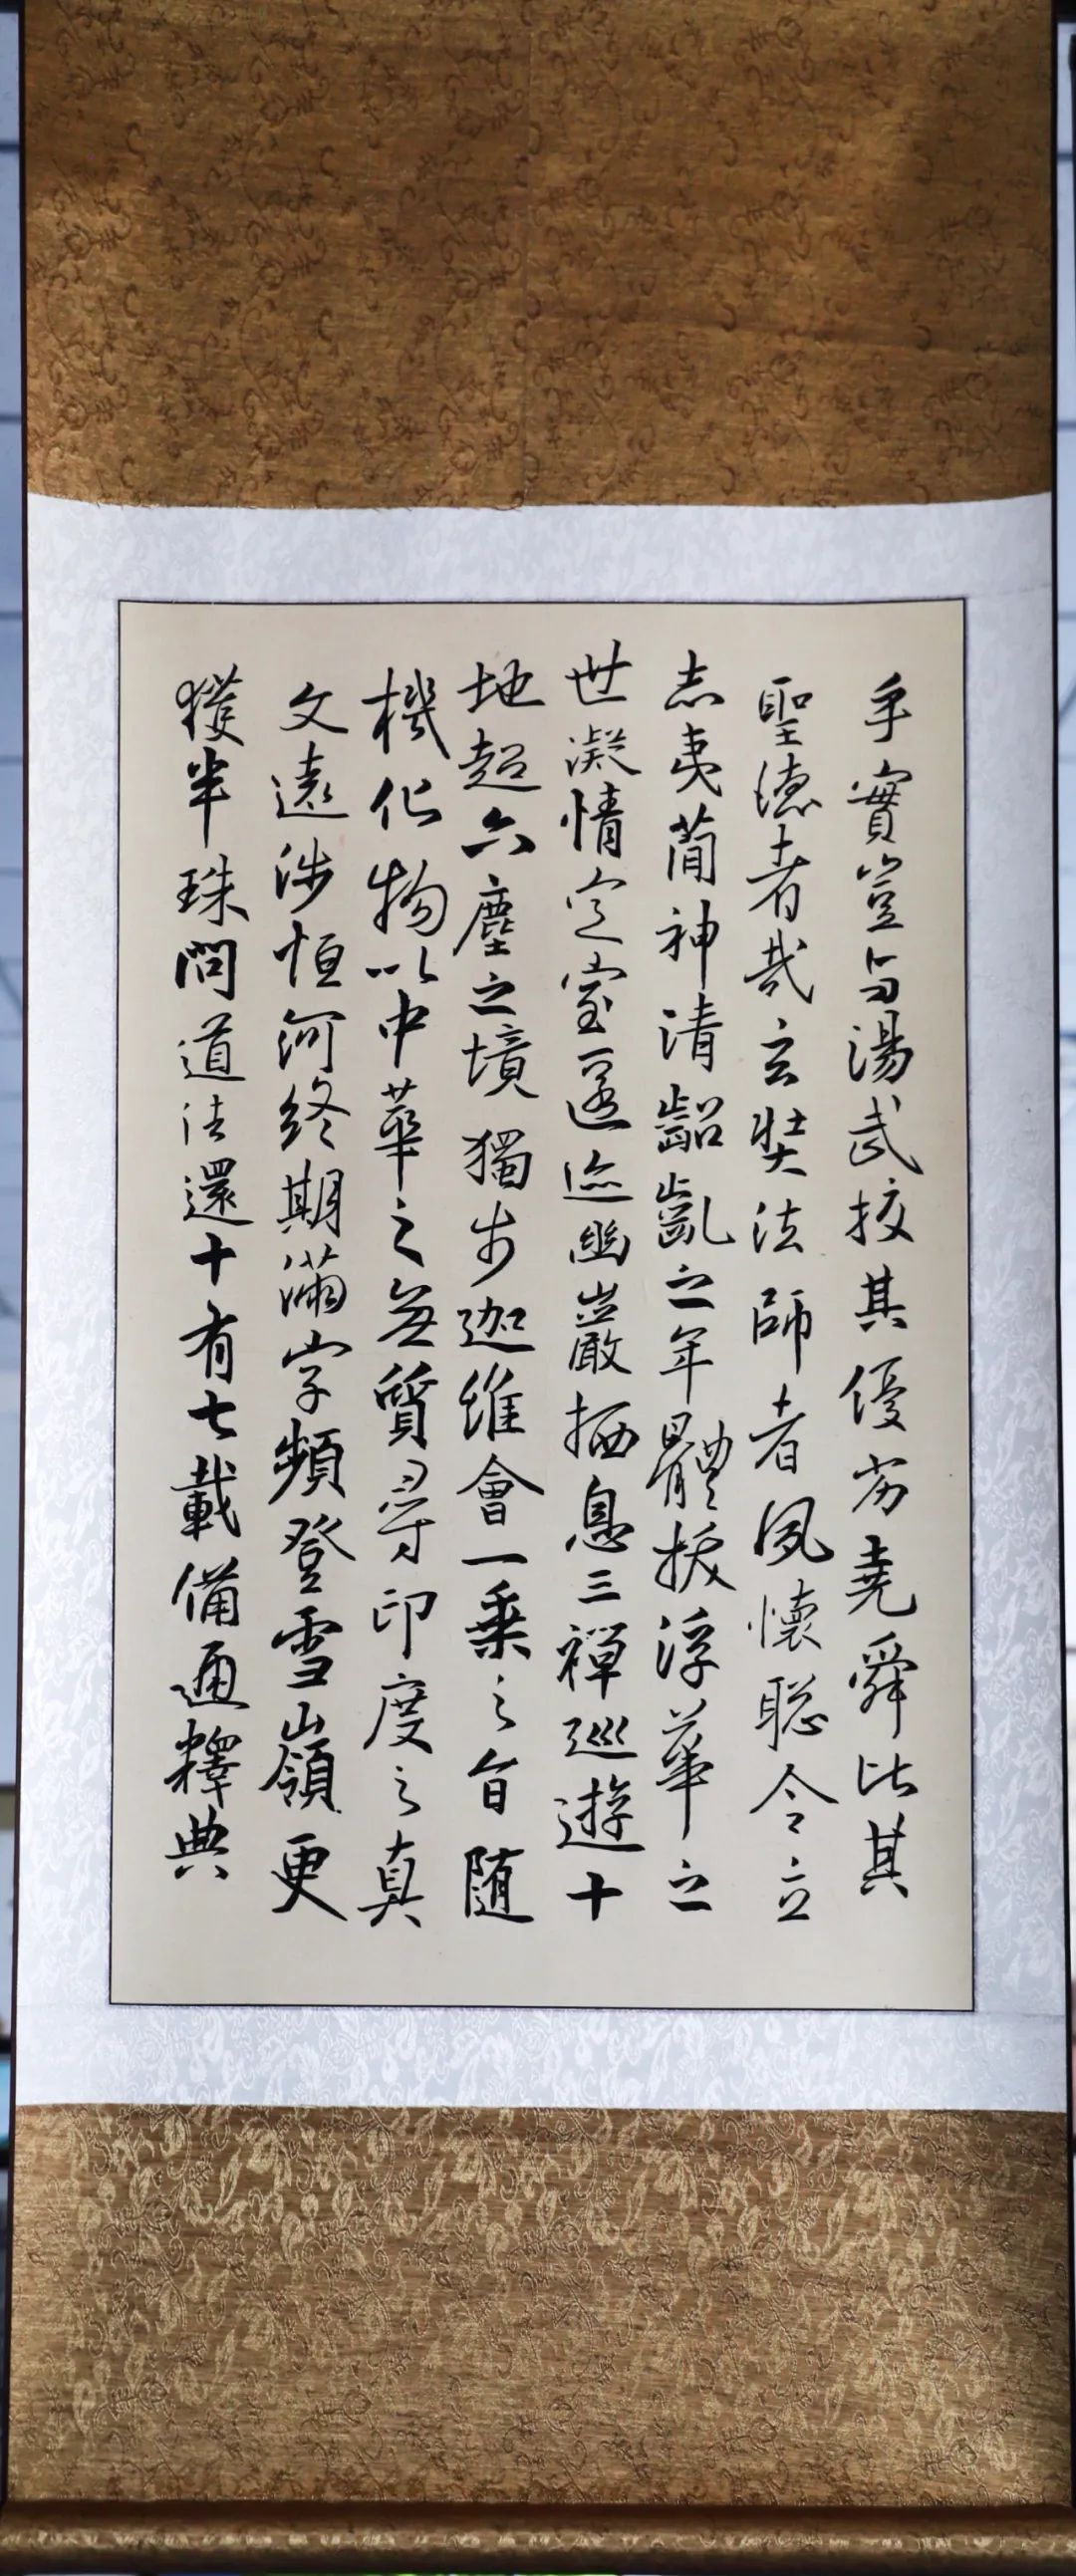 手實豈与湯武挍其優劣堯舜比其
聖德者哉玄奘法師者夙懷聡令立
志夷簡神清齠齔之年體拔浮華之
世凝情定室匿迹幽巖栖息三禪巡遊十
地超六塵之境獨步迦維會一乘之旨随
機化物以中華之無質尋印度之真
文遠涉恒河終期滿字頻登雪嶺更
獲半珠問道法還十有七載備通釋典